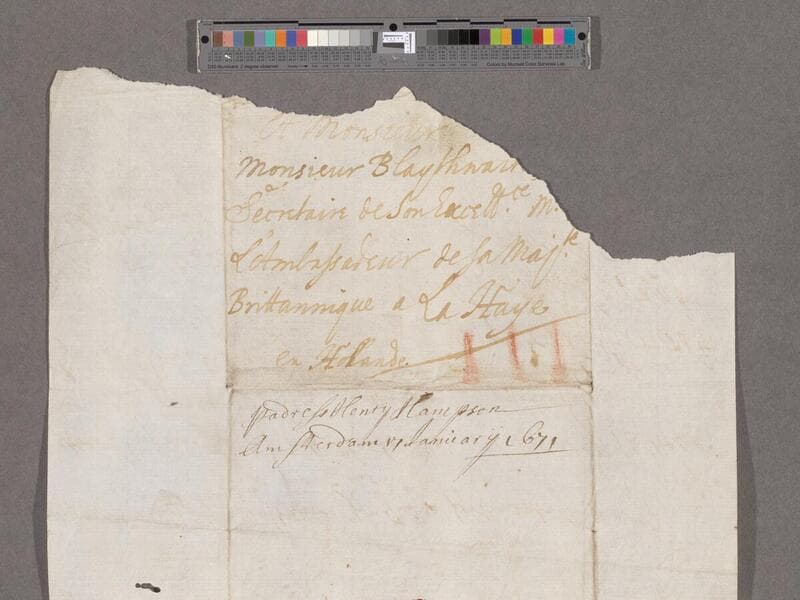 A Monsieur
Monsieur Blaythwai
Secretaire de Son Excell.ce M.r
L'Ambassadeur de sa Maj.te
Brittannique a La Haye
en Holande
III
p adresse Henry
Amsterdam 17 January 1671